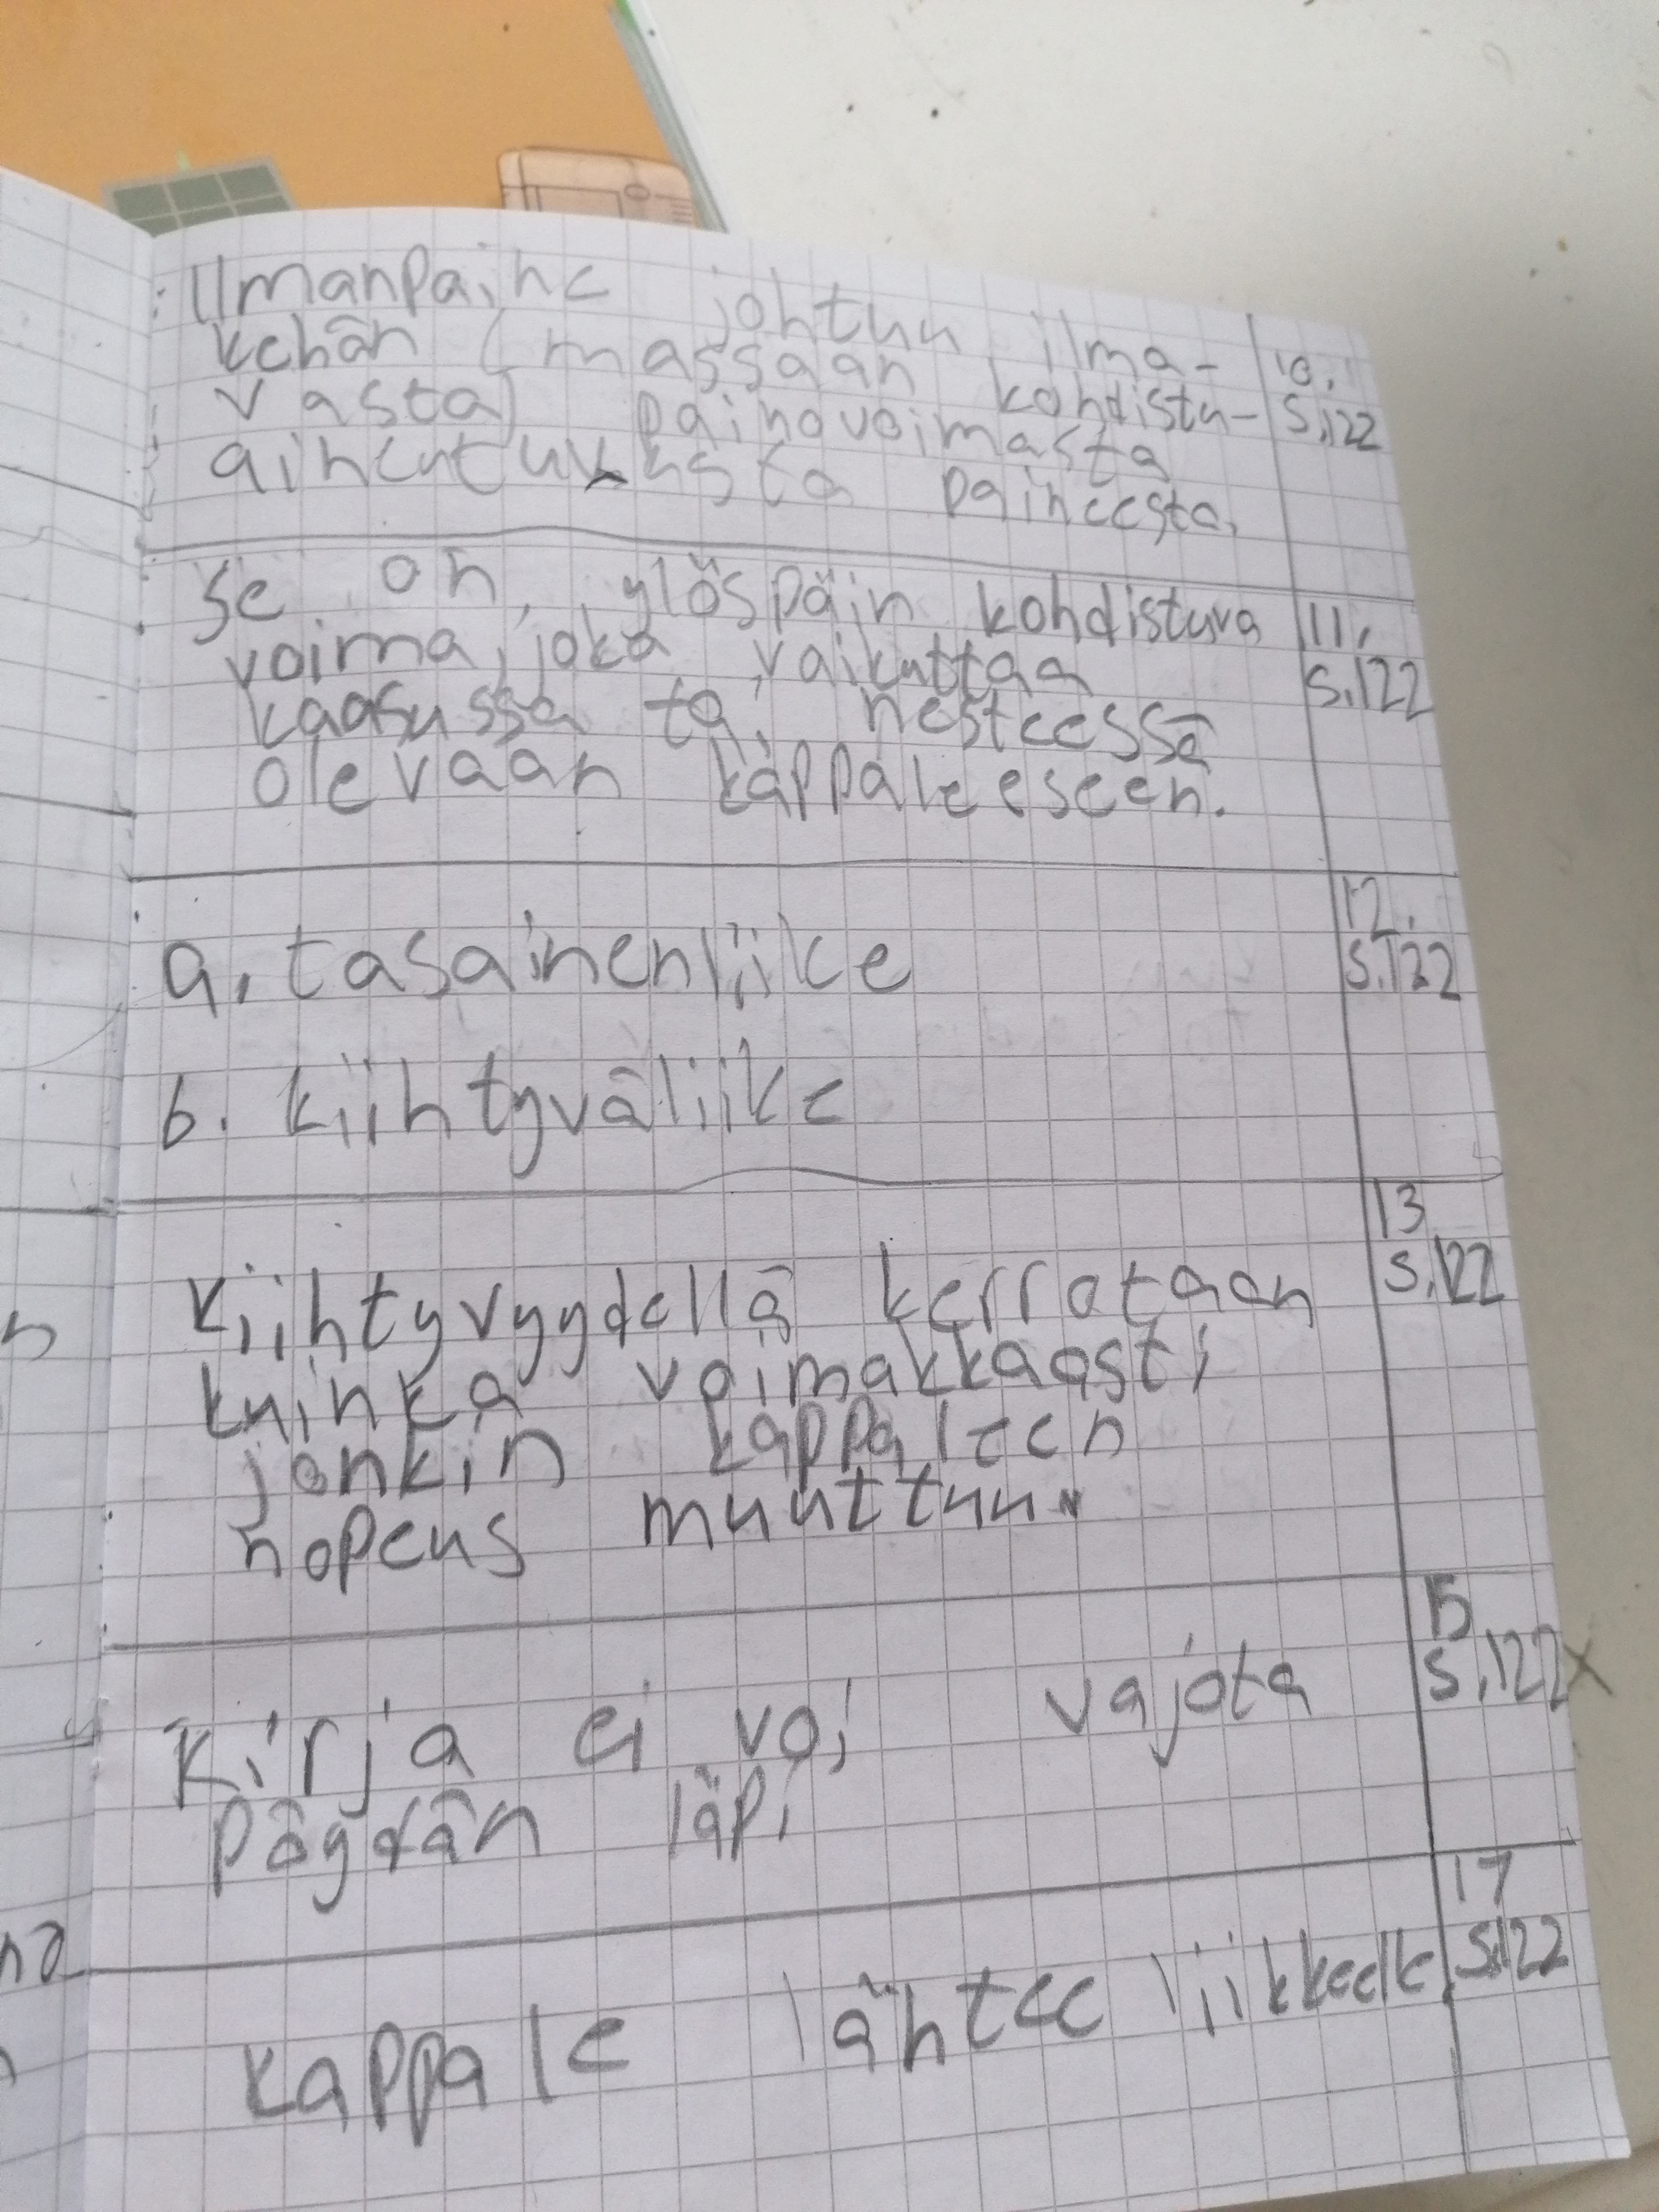 Ilmanpaine johtuu ilma-
kehän (massaan kohdistu-
vasta) painovoimasta
paineesta.
10.
s.122
Se on ylöspäin kohdistuva
voima, joka vaikuttaa
kaasussa tai nesteessä
olevaan kappaleeseen.
11.
s.122
a. tasainenliike
b. kiihtyväliike
12.
s.122
Kiihtyvyydellä kerrotaan
kuinka voimakkaasti
jonkin kappaleen
nopeus muuttuu.
13
s.122
Kirja ei voi vajota
pöydän läpi
15
s.122 x
kappale lähtee liikkeelle.
17
s.122